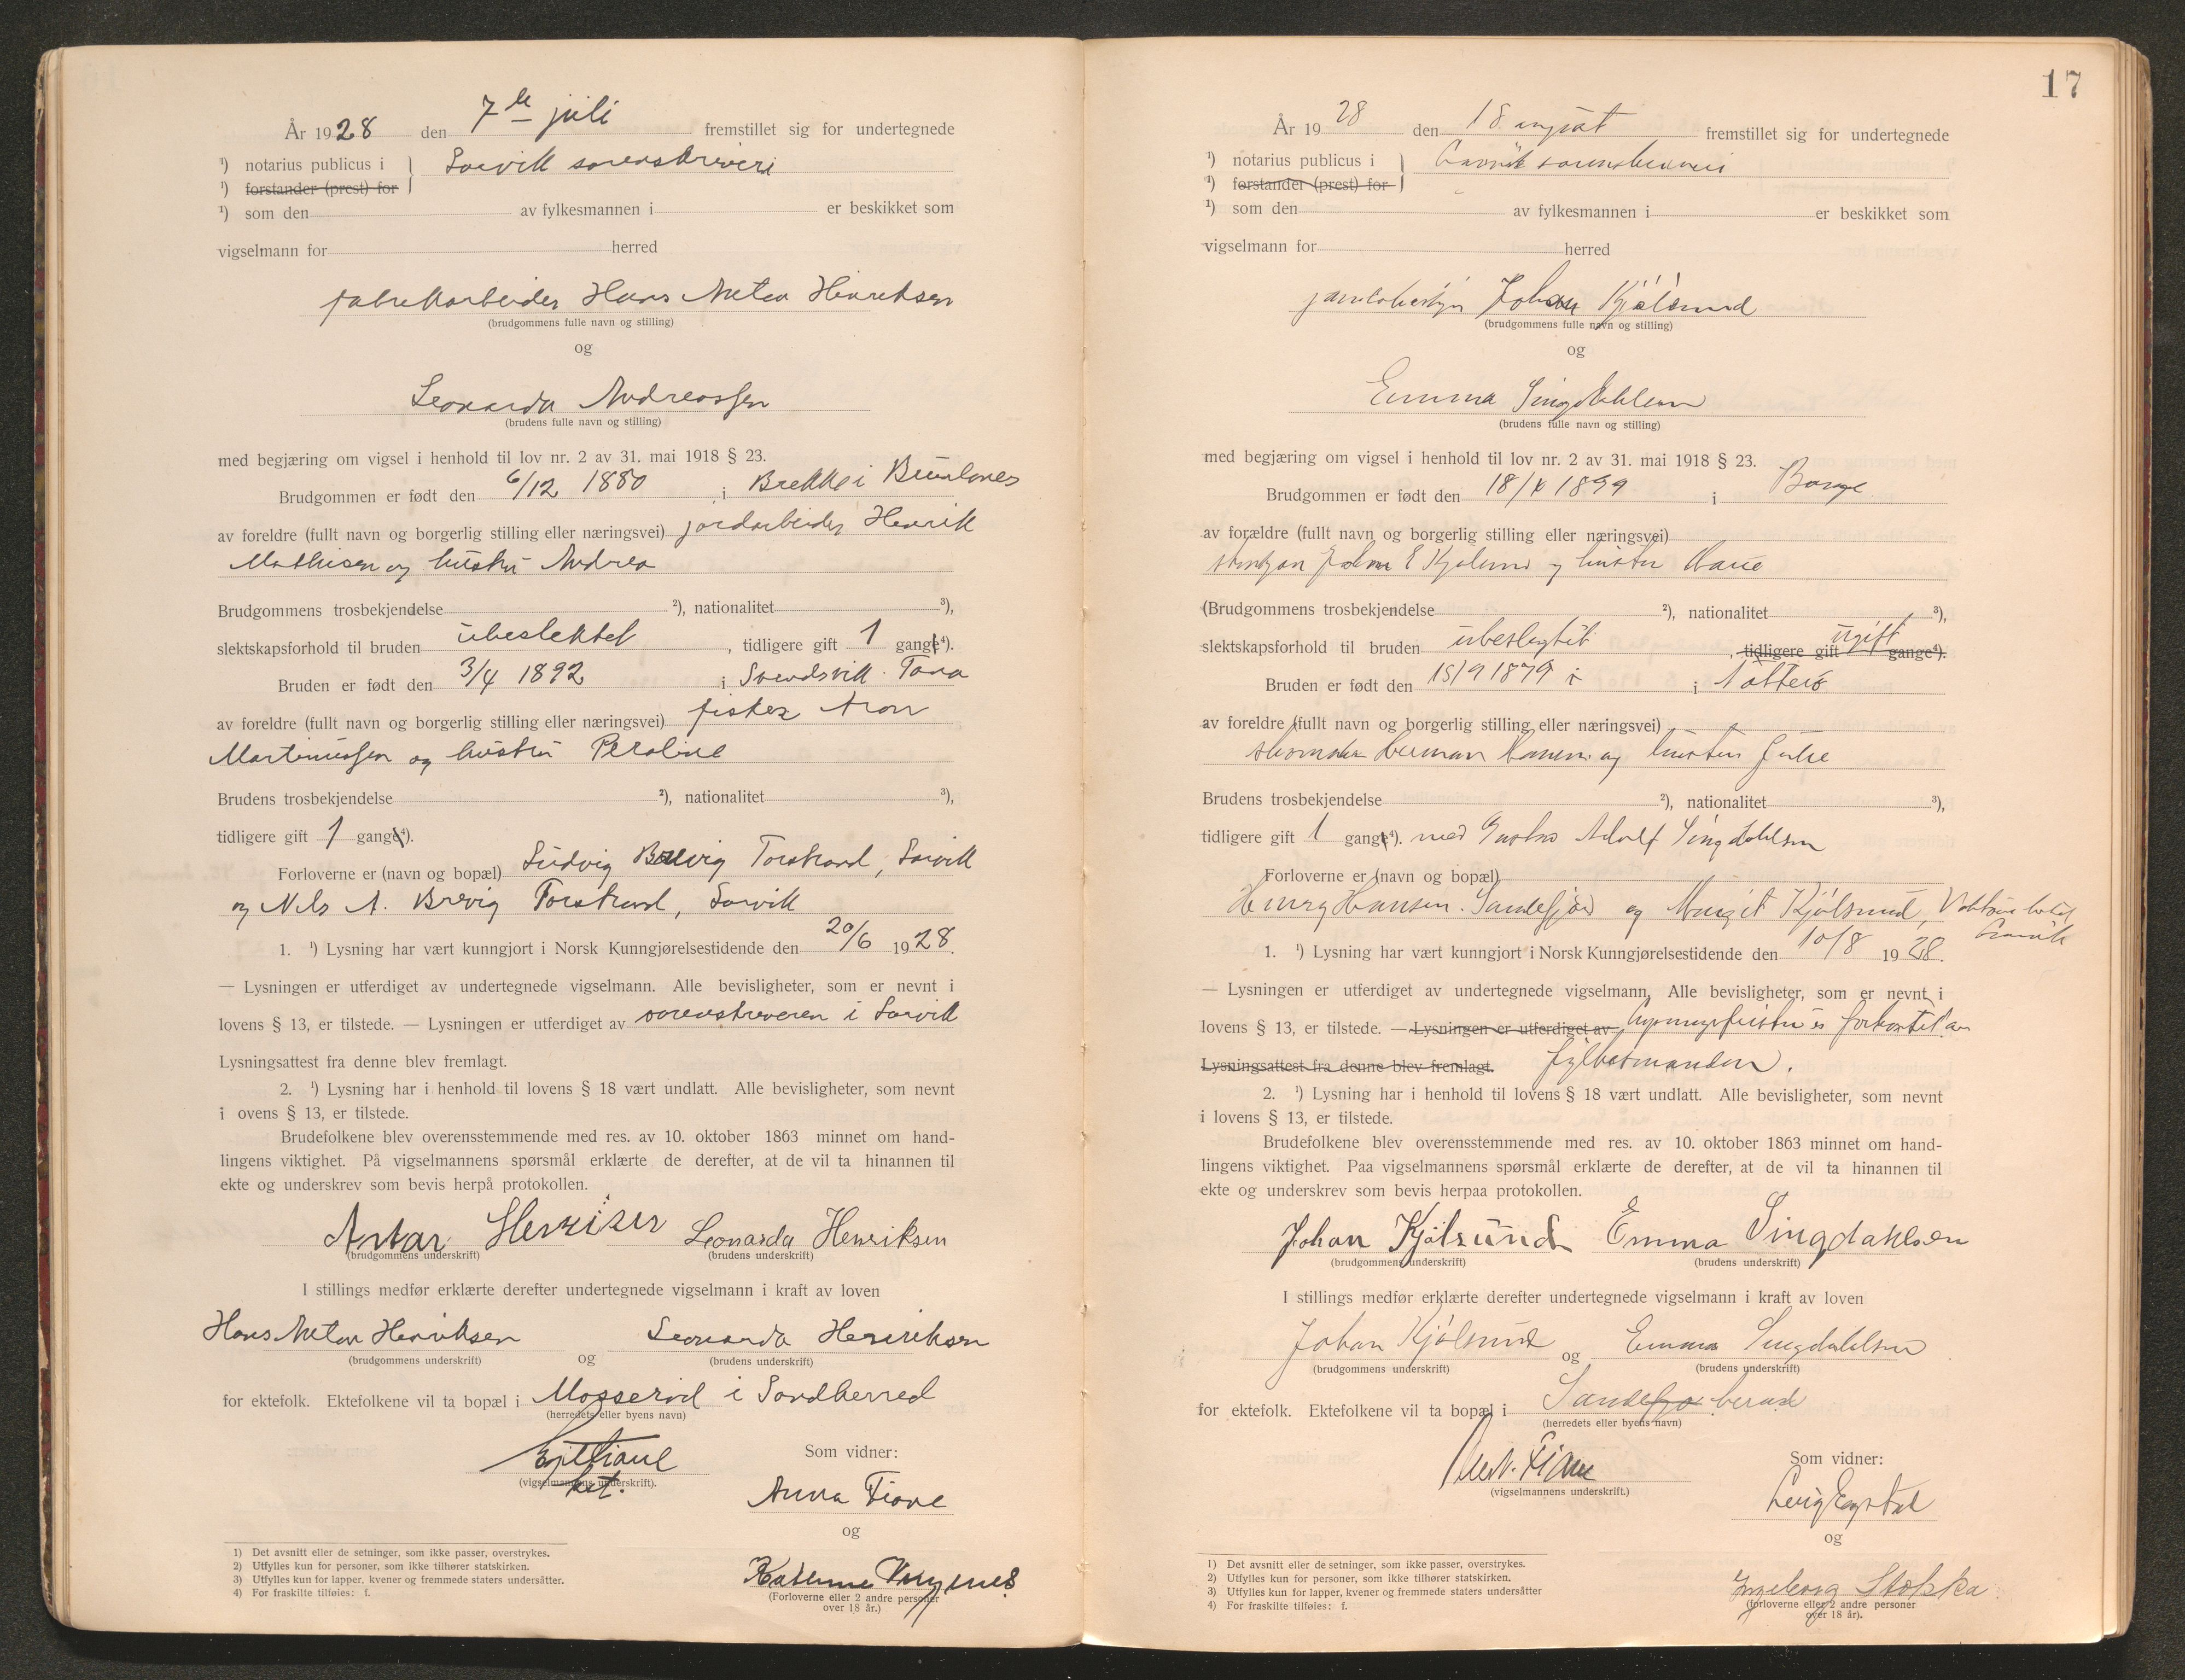 År 1928 den 7de juli fremstillet sig for undertegnede
¹) notarius publicus i Larvik sorenskriveri
¹) forstander (prest) for
¹) som den av fylkesmannen i er beskikket som
vigselmann for herred
fabrikkarbeider Hans Anton Henriksen
(brudgommens fulle navn og stilling)
og
Leonarda Andreassen
(brudens fulle navn og stilling)
med begjæring om vigsel i henhold til lov nr. 2 av 31. mai 1918 § 23.
Brudgommen er født den 6/12 1880 i Brekke i Brunlanes
av foreldre (fullt navn og borgerlig stilling eller næringsvei) jordarbeider Henrik
Mathisen og hustru Andrea
Brudgommens trosbekjendelse ²), nationalitet ³),
slektskapsforhold til bruden ubeslektet, tidligere gift 1 gange⁴).
Bruden er født den 3/4 1892 i Svendsvik. Tana
av foreldre (fullt navn og borgerlig stilling eller næringsvei) fisker Aron
Martinussen og hustru Peraline
Brudens trosbekjendelse ²), nationalitet ³),
tidligere gift 1 gange⁴).
Forloverne er (navn og bopæl) Ludvig Brevig Torstrand, Larvik
og Nils A. Brevig Torstrand, Larvik
1. ¹) Lysning har vært kunngjort i Norsk Kunngjørelsestidende den 20/6 1928.
— Lysningen er utferdiget av undertegnede vigselmann. Alle bevisligheter, som er nevnt i
lovens § 13, er tilstede. — Lysningen er utferdiget av sorenskriveren i Larvik
Lysningsattest fra denne blev fremlagt.
2. ¹) Lysning har i henhold til lovens § 18 vært undlatt. Alle bevisligheter, som nevnt
i ovens § 13, er tilstede.
Brudefolkene blev overensstemmende med res. av 10. oktober 1863 minnet om hand-
lingens viktighet. På vigselmannens spørsmål erklærte de derefter, at de vil ta hinannen til
ekte og underskrev som bevis herpå protokollen.
Leonarda Henriksen
(brudgommens underskrift) (brudens underskrift)
I stillings medfør erklærte derefter undertegnede vigselmann i kraft av loven
Hans Anton Henriksen Leonarda Henriksen
(brudgommens underskrift) og (brudens underskrift)
for ektefolk. Ektefolkene vil ta bopæl i Mosserød i Sandherred
(herredets eller byens navn)
Som vidner:
(vigselmannens underskrift).
Anna Fiane
og
(Forloverne eller 2 andre personer
over 18 år.)
1) Det avsnitt eller de setninger, som ikke passer, overstrykes.
2) Utfylles kun for personer, som ikke tilhører statskirken.
3) Utfylles kun for lapper, kvener og fremmede staters undersåtter.
4) For fraskilte tilføies: f.
17
År 1928 den 18 august fremstillet sig for undertegnede
¹) notarius publicus i Larvik sorenskriveri
¹) forstander (prest) for
¹) som den av fylkesmannen i er beskikket som
vigselmann for herred
Johan Kjølsund
(brudgommens fulle navn og stilling)
og
Emma Singdahlsen
(brudens fulle navn og stilling)
med begjæring om vigsel i henhold til lov nr. 2 av 31. mai 1918 § 23.
Brudgommen er født den 18/ 1899 i Borge
av forældre (fullt navn og borgerlig stilling eller næringsvei)
E Kjølsund og hustru
(Brudgommens trosbekjendelse ²), nationalitet ³),
slektskapsforhold til bruden ubeslegtet, tidligere gift ugift gange⁴).
Bruden er født den 15/9 1879 i i Nøtterø
av foreldre (fullt navn og borgerlig stilling eller næringsvei)
skomaker Herman Hansen og hustru Julie
Brudens trosbekjendelse ²), nationalitet ³),
tidligere gift 1 gange⁴). med Gustav Adolf Singdahlsen
Forloverne er (navn og bopæl)
Henry Hansen. Sandefjord og Margit Kjølsund,
Larvik
1. ¹) Lysning har vært kunngjort i Norsk Kunngjørelsestidende den 10/8 1928.
— Lysningen er utferdiget av undertegnede vigselmann. Alle bevisligheter, som er nevnt i
lovens § 13, er tilstede. — Lysningen er utferdiget av lysningsfristen er forkortet av
Lysningsattest fra denne blev fremlagt. fylkesmanden.
2. ¹) Lysning har i henhold til lovens § 18 vært undlatt. Alle bevisligheter, som nevnt
i lovens § 13, er tilstede.
Brudefolkene blev overensstemmende med res. av 10. oktober 1863 minnet om hand-
lingens viktighet. Paa vigselmannens spørsmål erklærte de derefter, at de vil ta hinannen til
ekte og underskrev som bevis herpaa protokollen.
Johan Kjølsund Emma Singdahlsen
(brudgommens underskrift) (brudens underskrift)
I stillings medfør erklærte derefter undertegnede vigselmann i kraft av loven
Johan Kjølsund og Emma Singdahlsen
(brudgommens underskrift) (brudens underskrift)
for ektefolk. Ektefolkene vil ta bopæl i
(herredets eller byens navn)
Fiane
(vigselmannens underskrift.)
Som vidner:
og
Ingeborg Stokka
(forloverne eller 2 andre personer
over 18 år).
1) Det avsnitt eller de setninger, som ikke passer, overstrykes.
2) Utfylles kun for personer, som ikke tilhører statskirken.
3) Utfylles kun for lapper, kvener og fremmede staters undersåtter
4) For fraskilte tilføies: f.